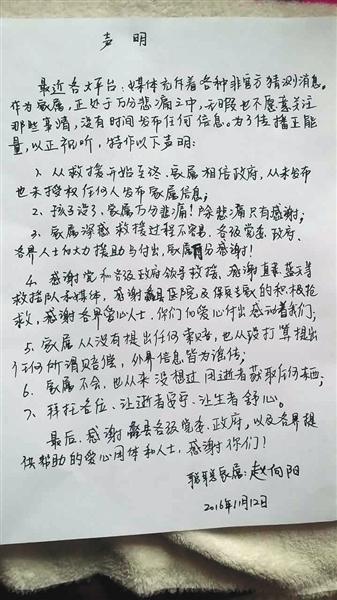 声明
最近各大平台、媒体充斥着各种非官方猜测消息。
作为家属,正处于万分悲痛之中,无暇也不愿意关注
那些事情,没有时间发布任何信息。为了传播正能
量,以正视听,特作以下声明:
1、从救援开始至终、家属相信政府,从未发布
也未授权任何人发布家属信息;
2、孩子没了、家属万分悲痛!除悲痛只有感谢;
3、家属深感救援过程不容易、各级党委、政府、
各界人士的大力援助与付出,家属万分感谢!
4、感谢党和各级政府领导救援,感谢直升蓝天等
救援队和媒体,感谢蠡县医院及保定的积极抢
救,感谢各界爱心人士,你们的爱心付出感动着我们;
5、家属从没有提出任何索赔,也从没打算提出
任何所谓赔偿,外界信息皆为谣传;
6、家属不会,也从来没想过因逝者获取任何东西;
7、拜托各位、让逝者安宁、让生者舒心。
最后、感谢蠡县各级党委、政府,以及各界提
供帮助的爱心团体和人士,感谢你们!
聪聪家属:赵向阳
2016年11月12日